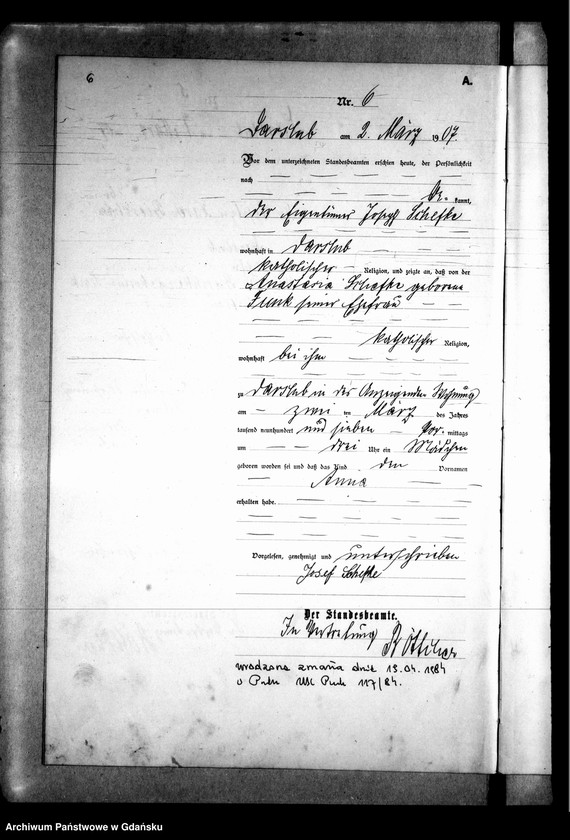 6
A.
Nr. 6
Darslub am 2. März 1907
Vor dem unterzeichneten Standesbeamten erschien heute, der Persönlichkeit
nach
be- kannt,
der Eigentümer Joseph Schefke
wohnhaft in Darslub
katholischer Religion, und zeigte an, daß von der
Anastasia Schefke geborene
Funk seiner Ehefrau
katholischer Religion,
wohnhaft bei ihm
zu Darslub in des Anzeigenden Wohnung
am zwei ten März des Jahres
tausend neunhundert und sieben Vor- mittags
um drei Uhr ein Mädchen
geboren worden sei und daß das Kind den Vornamen
Anna
erhalten habe.
Vorgelesen, genehmigt und unterschrieben
Josef Schefke
Der Standesbeamte.
In Vertretung
Böttcher
urodzona zmarła dnia 13.04.1984
w Pucku USC Puck 117/84.
Archiwum Państwowe w Gdańsku